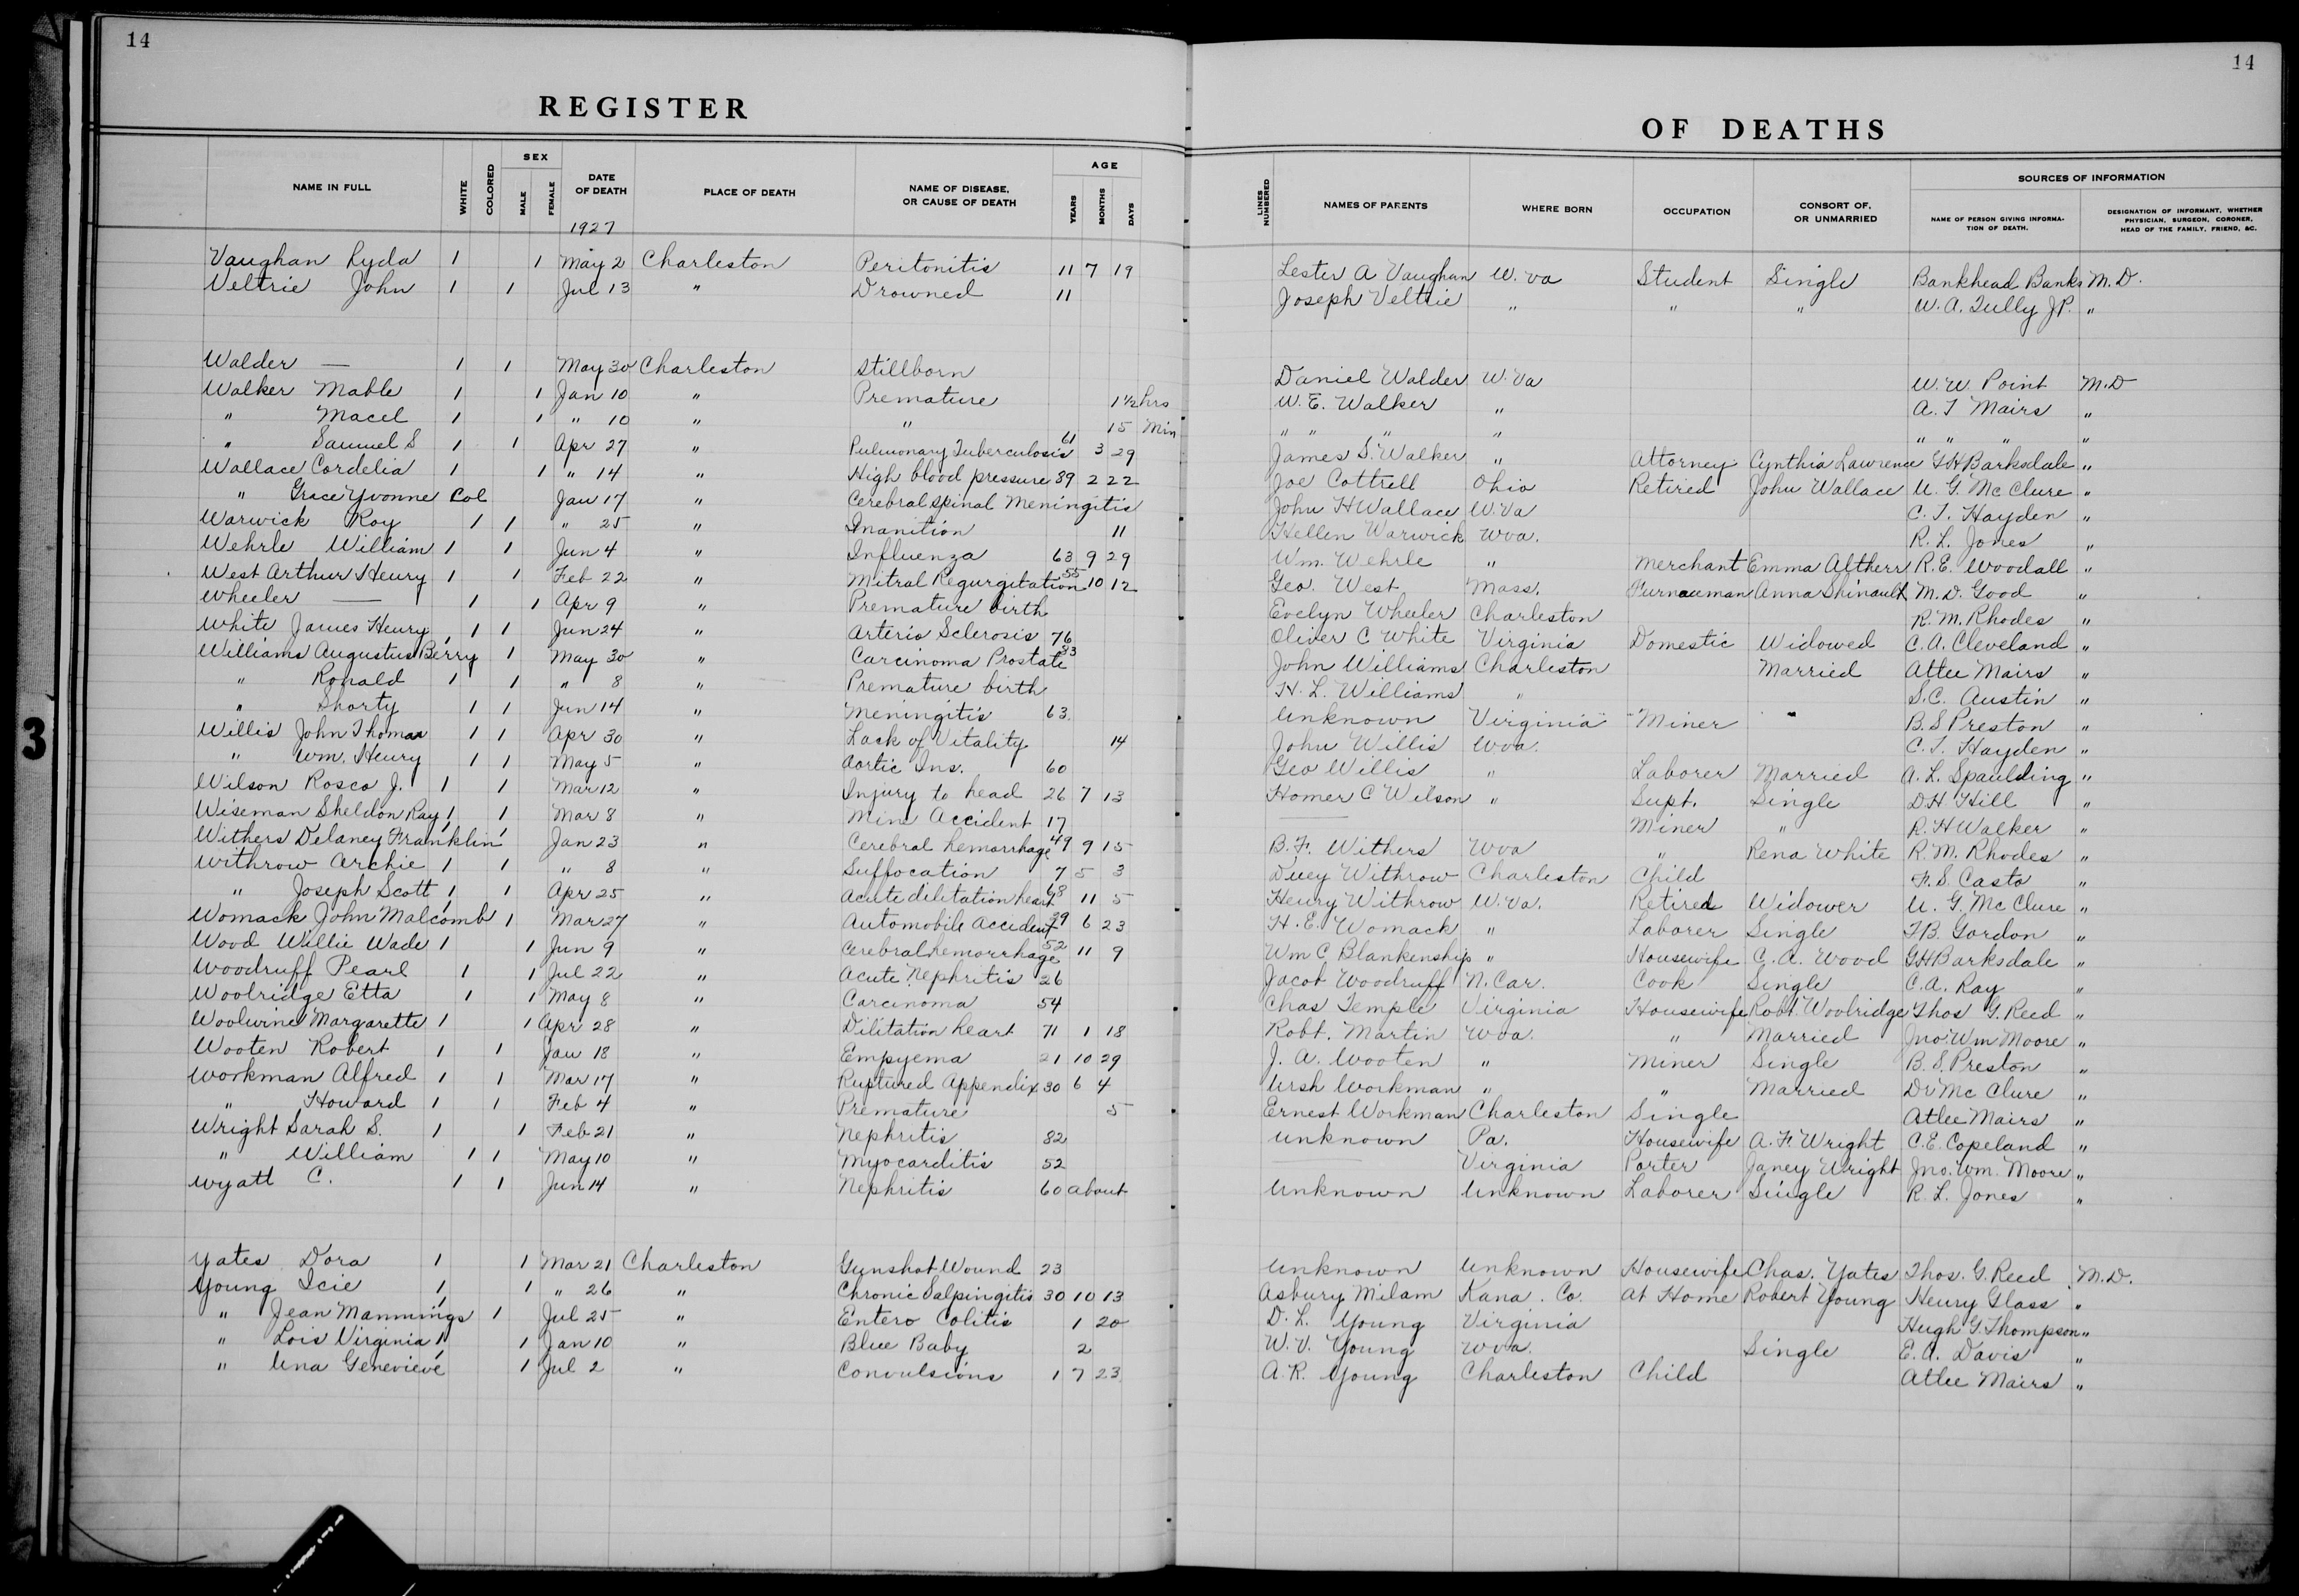 14
14
REGISTER
OF DEATHS
NAME IN FULL WHITE COLORED SEX MALE FEMALE DATE OF DEATH PLACE OF DEATH NAME OF DISEASE, OR CAUSE OF DEATH AGE YEARS MONTHS DAYS LINES NUMBERED NAMES OF PARENTS WHERE BORN OCCUPATION CONSORT OF, OR UNMARRIED SOURCES OF INFORMATION NAME OF PERSON GIVING INFORMATION OF DEATH. DESIGNATION OF INFORMANT, WHETHER PHYSICIAN, SURGEON, CORONER, HEAD OF THE FAMILY, FRIEND, &C.
1927
Vaughan Lyda 1 1 May 2 Charleston Peritonitis 11 7 19 Lester A Vaughan W. Va Student Single Bankhead Banks M.D.
Veltrie John 1 1 Jul 13 " Drowned 11 Joseph Veltrie " " " W. A. Tully J.P. "
Walder — 1 1 May 30 Charleston Stillborn Daniel Walder W. Va W. W. Point M.D
Walker Mable 1 1 Jan 10 " Premature 1½ hrs W. E. Walker " A. T Mairs "
" Macel 1 1 " 10 " " 15 Min " " " " " " " "
" Samuel S 1 1 Apr 27 " Pulmonary Tuberculosis 61 3 29 James S. Walker " Attorney Cynthia Lawrence G H Barksdale "
Wallace Cordelia 1 1 " 14 " High blood pressure 89 2 22 Joe Cottrell Ohio Retired John Wallace U. G. McClure "
" Grace Yvonne Col Jan 17 " Cerebral Spinal Meningitis John H Wallace W. Va C. T. Hayden "
Warwick Roy 1 1 " 25 " Inanition 11 Hellen Warwick W Va. R. L. Jones "
Wehrle William 1 1 Jun 4 " Influenza 63 9 29 Wm. Wehrle " Merchant Emma Altherr R. E. Woodall "
West Arthur Henry 1 1 Feb 22 " Mitral Regurgitation 55 10 12 Geo. West Mass. Furnaceman Anna Shinault M. D. Good "
Wheeler — 1 1 Apr 9 " Premature birth Evelyn Wheeler Charleston R. M. Rhodes "
White James Henry 1 1 Jun 24 " Arterio Sclerosis 76 Oliver C White Virginia Domestic Widowed C. A. Cleveland "
Williams Augustus Berry 1 1 May 30 " Carcinoma Prostate 83 John Williams Charleston Married Atlee Mairs "
" Ronald 1 1 " 8 " Premature birth H. L. Williams " S. C. Austin "
" Shorty 1 1 Jun 14 " Meningitis 63 Unknown Virginia Miner - B. S Preston "
Willis John Thomas 1 1 Apr 30 " Lack of Vitality 14 John Willis W Va. C. T. Hayden "
" Wm. Henry 1 1 May 5 " Aortic Ins. 60 Geo Willis " Laborer Married A. L. Spaulding "
Wilson Rosco J. 1 1 Mar 12 " Injury to head 26 7 13 Homer C Wilson " Supt. Single D. H. Hill "
Wiseman Sheldon Ray 1 1 Mar 8 " Mine Accident 17 — Miner " R. H Walker "
Withers Delaney Franklin 1 1 Jan 23 " Cerebral hemorrhage 49 9 15 B. F. Withers W Va " Rena White R. M. Rhodes "
Withrow Archie 1 1 " 8 " Suffocation 7 5 3 Duey Withrow Charleston Child F. S. Casto "
" Joseph Scott 1 1 Apr 25 " Acute dilitation heart 68 11 5 Henry Withrow W. Va. Retired Widower U. G. McClure "
Womack John Malcomb 1 1 Mar 27 " Automobile Accident 39 6 23 H. E. Womack " Laborer Single T B. Gordon "
Wood Willie Wade 1 1 Jun 9 " Cerebral hemorrhage 52 11 9 Wm C Blankenship " Housewife C. A. Wood G H Barksdale "
Woodruff Pearl 1 1 Jul 22 " Acute Nephritis 26 Jacob Woodruff N. Car. Cook Single C. A. Ray "
Woolridge Etta 1 1 May 8 " Carcinoma 54 Chas Temple Virginia Housewife Robt. Woolridge Thos G. Reed "
Woolwine Margarette 1 1 Apr 28 " Dilitation heart 71 1 18 Robt. Martin W Va. " Married Jno. Wm Moore "
Wooten Robert 1 1 Jan 18 " Empyema 21 10 29 J. A. Wooten " Miner Single B. S. Preston "
Workman Alfred 1 1 Mar 17 " Ruptured Appendix 30 6 4 Ursh Workman " " Married Dr McClure "
" Howard 1 1 Feb 4 " Premature 5 Ernest Workman Charleston Single Atlee Mairs "
Wright Sarah S. 1 1 Feb 21 " Nephritis 82 Unknown Pa. Housewife A. F. Wright C. E. Copeland "
" William 1 1 May 10 " Myocarditis 52 — Virginia Porter Janey Wright Jno. Wm. Moore "
Wyatt C. 1 1 Jun 14 " Nephritis 60 about Unknown Unknown Laborer Single R. L. Jones "
Yates Dora 1 1 Mar 21 Charleston Gunshot Wound 23 Unknown Unknown Housewife Chas. Yates Thos. G. Reed M.D.
Young Icie 1 1 " 26 " Chronic Salpingitis 30 10 13 Asbury Milam Kana. Co. At Home Robert Young Henry Glass "
" Jean Mannings 1 1 Jul 25 " Entero Colitis 1 20 D. L. Young Virginia Hugh G. Thompson "
" Lois Virginia 1 1 Jan 10 " Blue Baby 2 W. V. Young W Va. Single E. A. Davis "
" Una Genevieve 1 1 Jul 2 " Convulsions 1 7 23 A. R. Young Charleston Child Atlee Mairs "
3